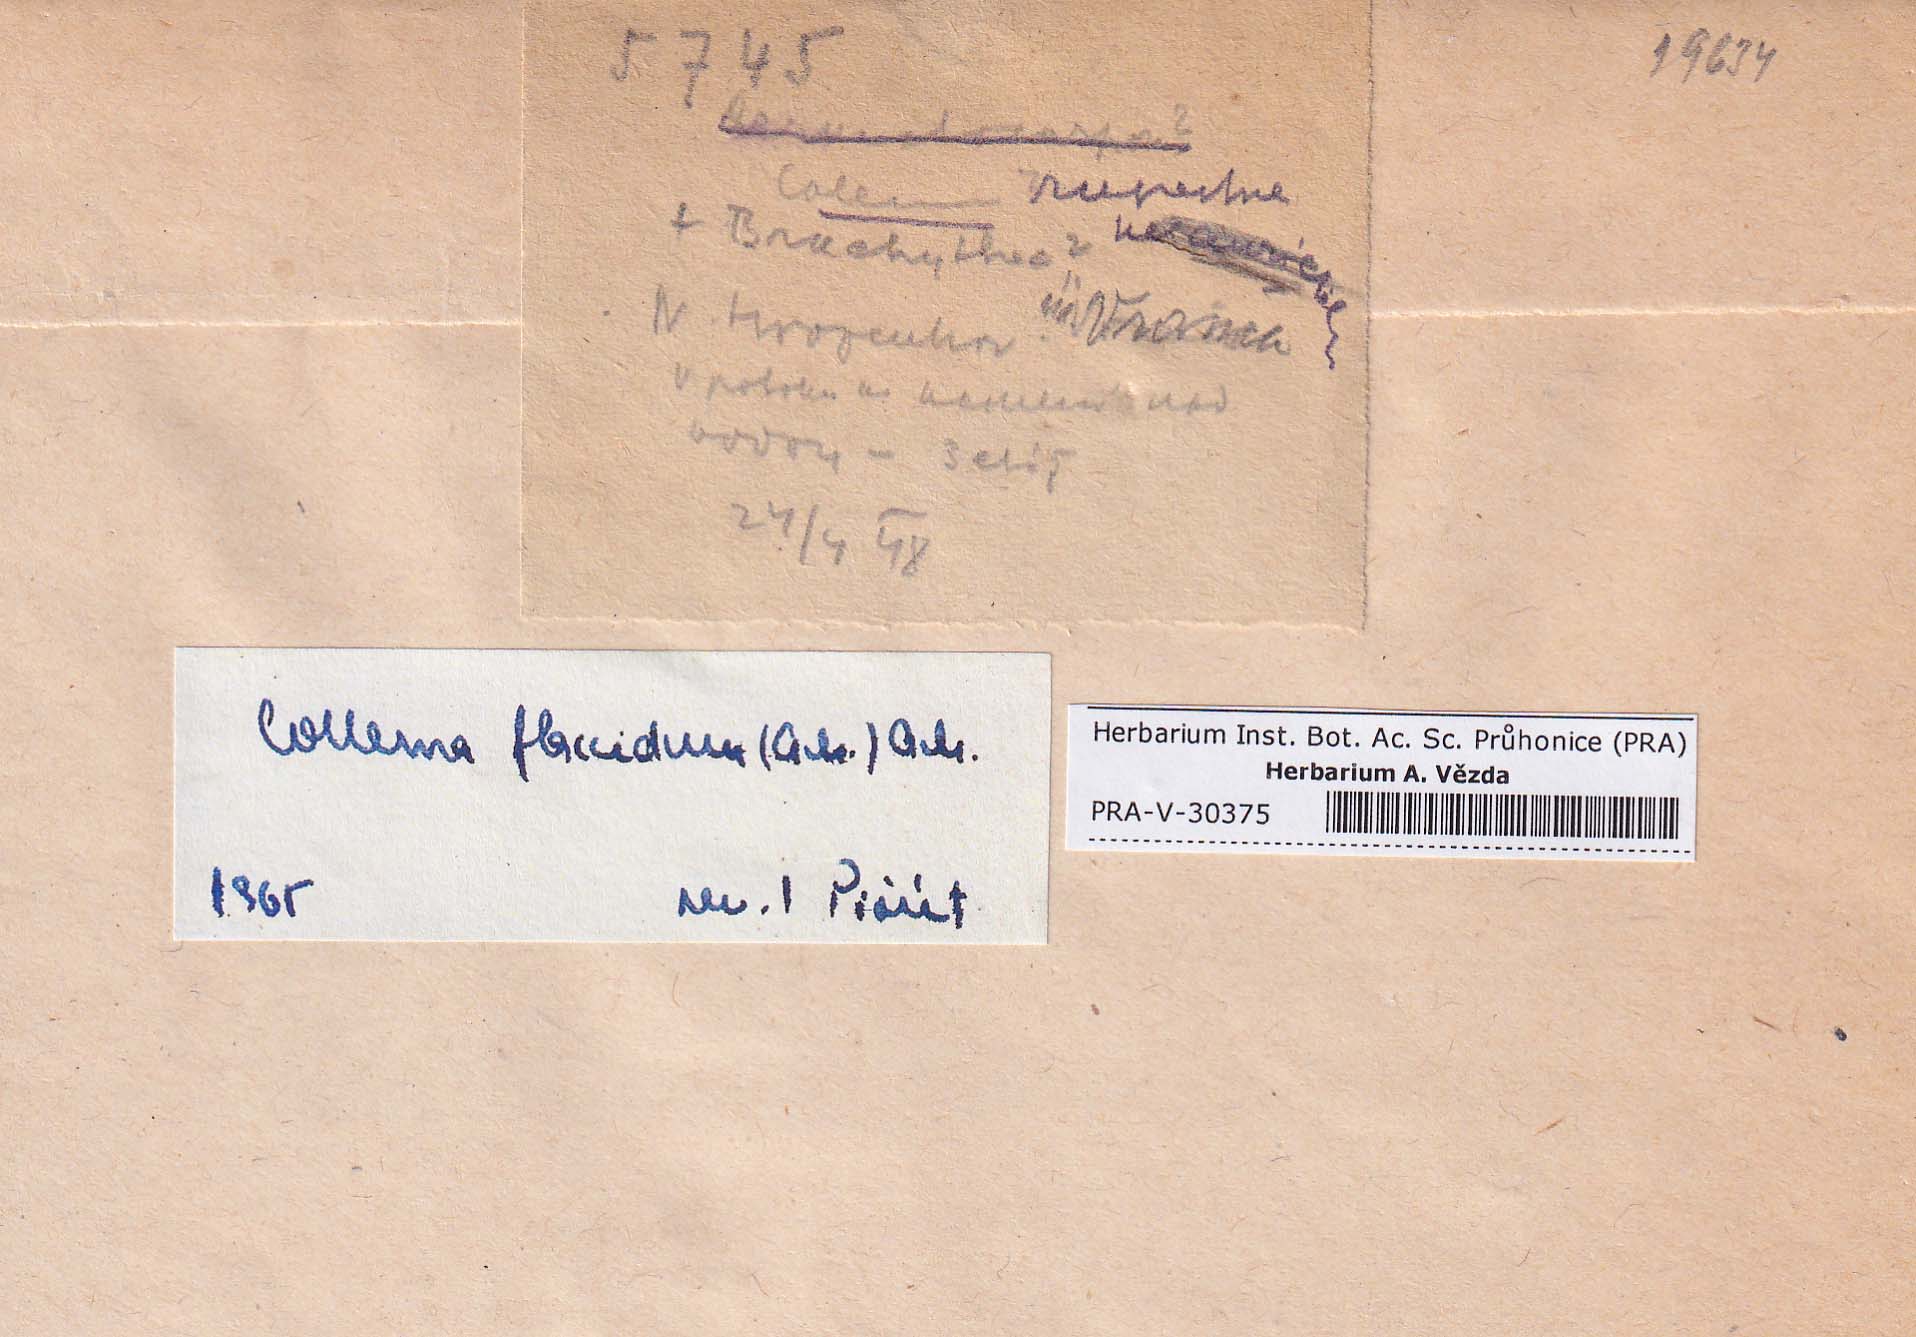 19634
5745
Collema rupestre
+ Brachythec?
N. Hrozenkov
v potoku na kameni nad
vodou -
24/4 48
Collema flaccidum (Ach.) Ach.
1965 rev. I Pišút
Herbarium Inst. Bot. Ac. Sc. Průhonice (PRA)
Herbarium A. Vězda
PRA-V-30375